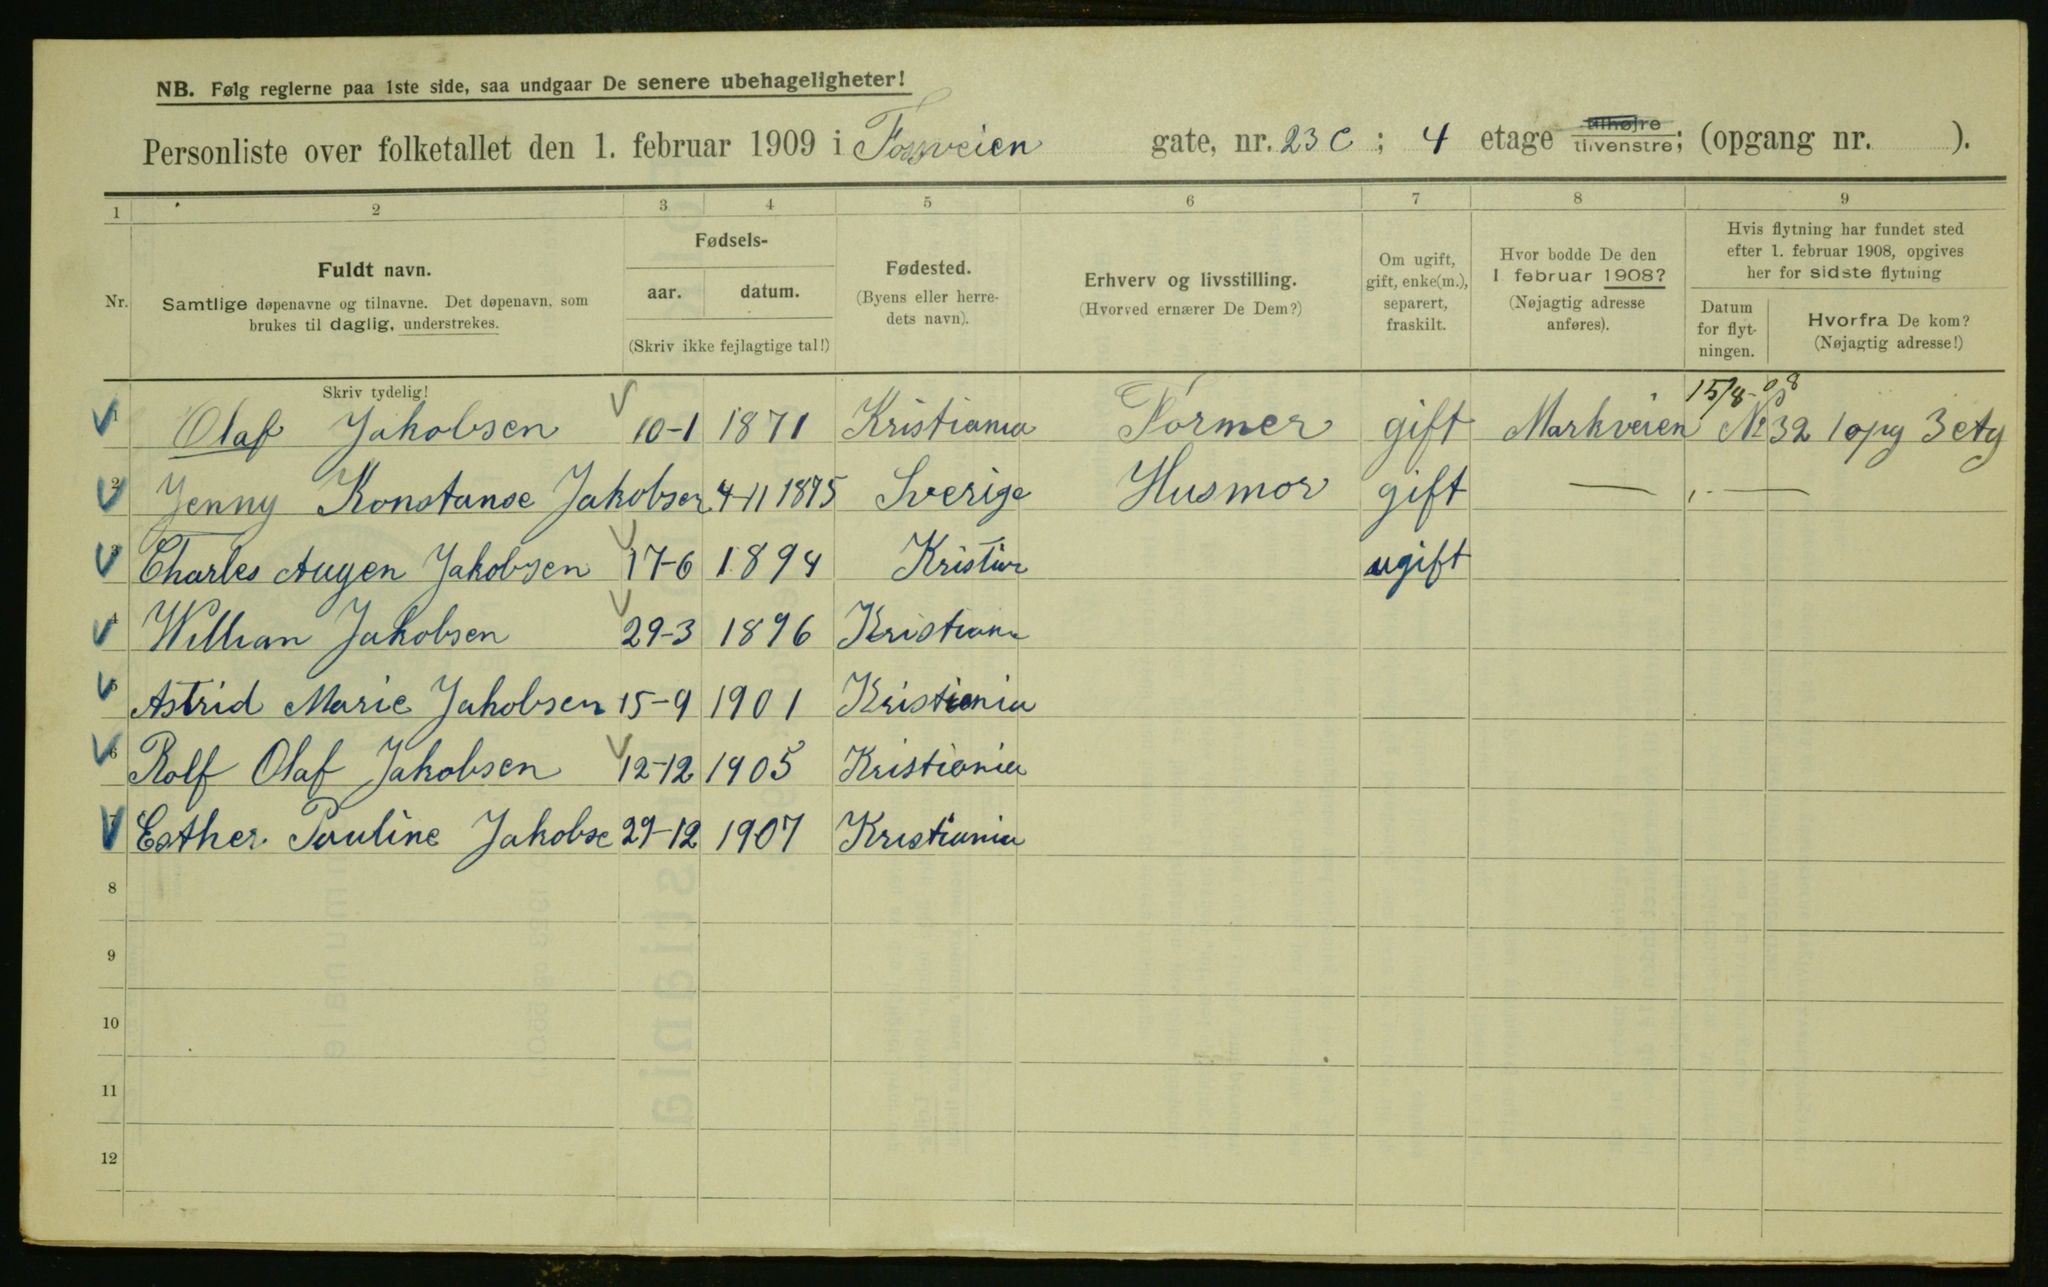 NB. Følg reglerne paa 1ste side, saa undgaar De senere ubehageligheter!
Personliste over folketallet den 1. februar 1909 i Fossveien gate, nr. 23 C ; 4 etage tilhøjre tilvenstre; (opgang nr. ).
1 2 3 4 5 6 7 8 9
Nr. Fuldt navn. Samtlige døpenavne og tilnavne. Det døpenavn, som brukes til daglig, understrekes.
Fødsels- aar. datum. (Skriv ikke fejlagtige tal!)
Fødested. (Byens eller herredets navn).
Erhverv og livsstilling. (Hvorved ernærer De Dem?)
Om ugift, gift, enke(m.), separert, fraskilt.
Hvor bodde De den 1 februar 1908? (Nøjagtig adresse anføres).
Hvis flytning har fundet sted efter 1. februar 1908, opgives her for sidste flytning
Datum for flytningen.
Hvorfra De kom? (Nøjagtig adresse!)
Skriv tydelig!
15/8-08
1 Olaf Jakobsen 10-1 1871 Kristiania Former gift Markveien No 32 1 opg 3 etg
2 Jenny Konstanse Jakobsen 4-11 1875 Sverige Husmor gift — " —
3 Charles Augen Jakobsen 17-6 1894 Kristia ugift
4 Willian Jakobsen 29-3 1896 Kristiana
5 Astrid Marie Jakobsen 15-9 1901 Kristiania
6 Rolf Olaf Jakobsen 12-12 1905 Kristiania
7 Esther Pauline Jakobse 29-12 1907 Kristiania
8
9
10
11
12